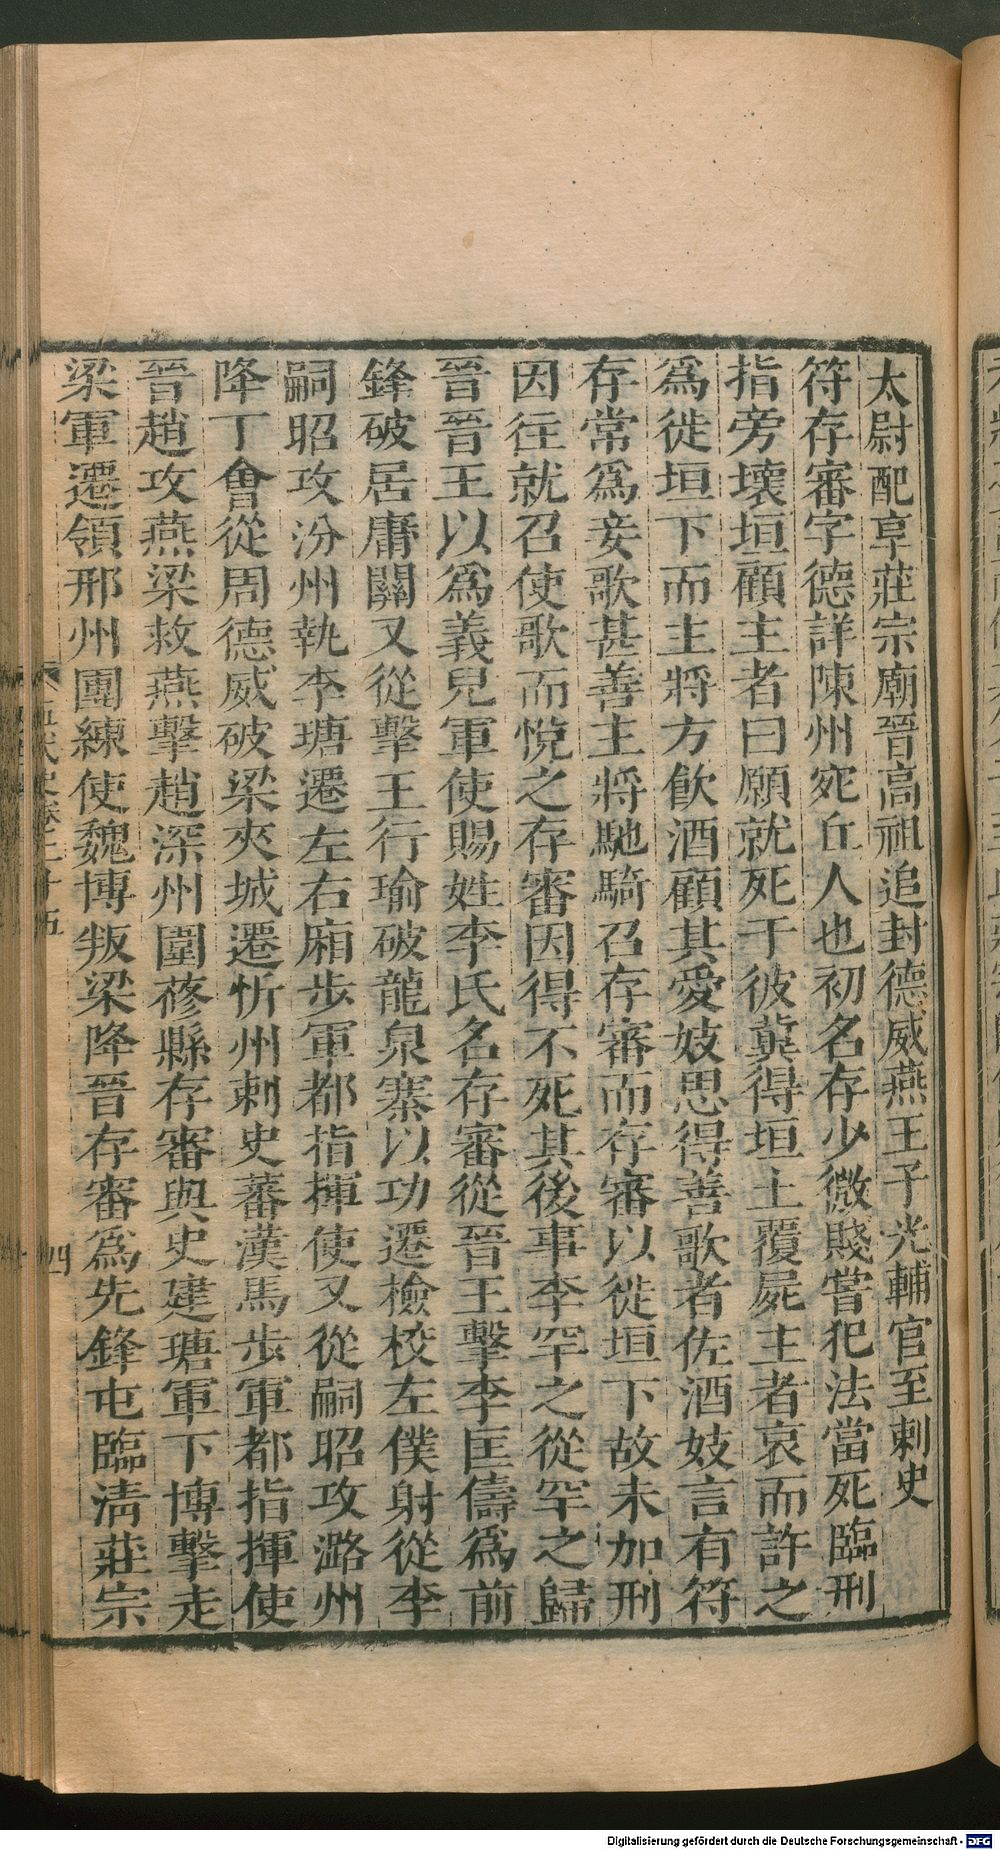 太尉配享莊宗廟晉高祖追封德威燕王子光輔官至刺史
符存審字德詳陳州宛丘人也初名存少微賤嘗犯法當死臨刑
指旁壞垣顧主者曰願就死于彼冀得垣土覆屍主者哀而許之
爲徙垣下而主將方飲酒顧其愛妓思得善歌者佐酒妓言有符
存常爲妾歌甚善主將馳騎召存審而存審以徙垣下故未加刑
因往就召使歌而悅之存審因得不死其後事李罕之從罕之歸
晉晉王以爲義兒軍使賜姓李氏名存審從晉王擊李匡儔爲前
鋒破居庸關又從擊王行瑜破龍泉寨以功遷檢校左僕射從李
嗣昭攻汾州執李瑭遷左右廂步軍都指揮使又從嗣昭攻潞州
降丁會從周德威破梁夾城遷忻州刺史蕃漢馬步軍都指揮使
晉趙攻燕梁救燕擊趙深州圍蓨縣存審與史建瑭軍下博擊走
梁軍遷領邢州團練使魏博叛梁降晉存審爲先鋒屯臨淸莊宗
五代史卷二十五
四
Digitalisierung gefördert durch die Deutsche Forschungsgemeinschaft - DFG